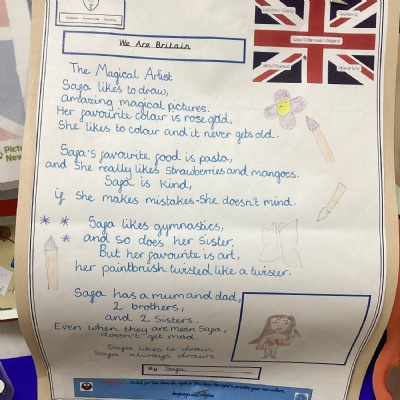 We Are Britain
The Magical Artist
Safa likes to draw,
amazing magical pictures.
Her favourite colour is rose gold,
She likes to colour and it never gets old.
Safa's favourite food is pasta,
and She really likes strawberries and mangoes.
Safa is kind,
if she makes mistakes - She doesn't mind.
Safa likes gymnastics,
and so does her sister.
But her favourite is art,
her paintbrush twisted like a twister.
Safa has a mum and dad,
2 brothers,
and 2 Sisters.
Even when they are mean Safa,
doesn't get mad.
Safa likes to draw,
Safa always draws.
By Safa